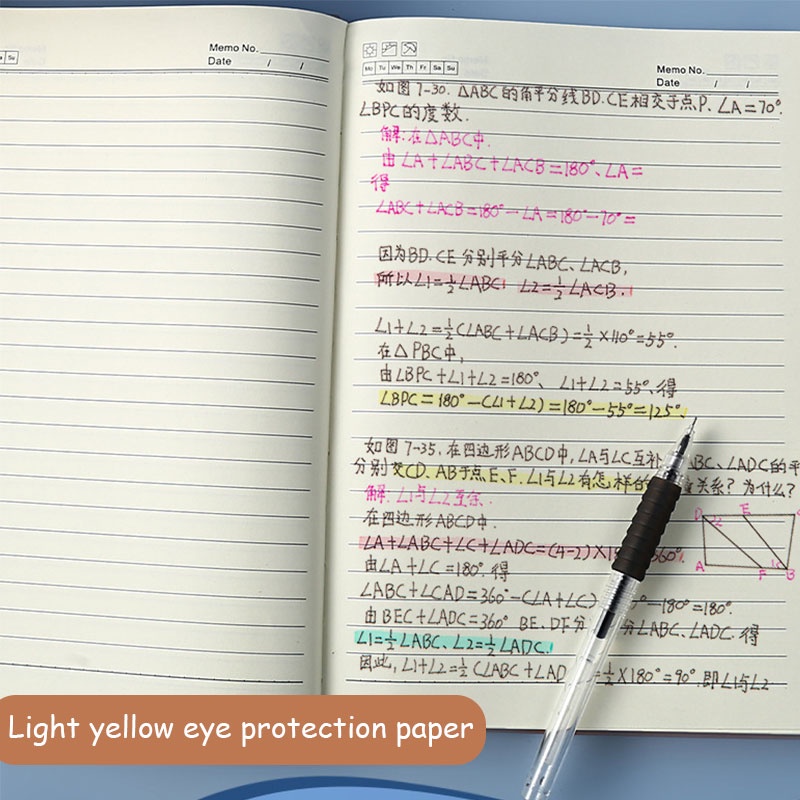 Su
Memo No.
Date / /
Mo Tu We Th Fr Sa Su
Memo No.
Date / /
如图7-30.△ABC的角平分线BD.CE相交于点P.∠A=70°.
∠BPC的度数.
解:在△ABC中.
由∠A+∠ABC+∠ACB=180°、∠A=
得
∠ABC+∠ACB=180°-∠A=180°-70°=
因为BD.CE分别平分∠ABC、∠ACB,
所以∠1=½∠ABC ∠2=½∠ACB.
∠1+∠2=½(∠ABC+∠ACB)=½×110°=55°.
在△PBC中,
由∠BPC+∠1+∠2=180°、∠1+∠2=55°.得
∠BPC=180°-(∠1+∠2)=180°-55°=125°.
如图7-35.在四边形ABCD中,∠A与∠C互补 ABC、∠ADC的平
分别交CD.AB于点E、F.∠1与∠2有怎样的 关系?为什么?
解:∠1与∠2互余.
在四边形ABCD中.
∠A+∠ABC+∠C+∠ADC=(4-2)×1 360°.
由∠A+∠C=180°.得
∠ABC+∠CAD=360°-(∠A+∠C) °-180°=180°.
由BEC+∠ADC=360° BE、DF分 分∠ABC、∠ADC.得
∠1=½∠ABC、∠2=½∠ADC.
因此,∠1+∠2=½(∠ABC+∠AD =½×180°=90°.即∠1与∠2
D 2 E
A F 1 B
Light yellow eye protection paper